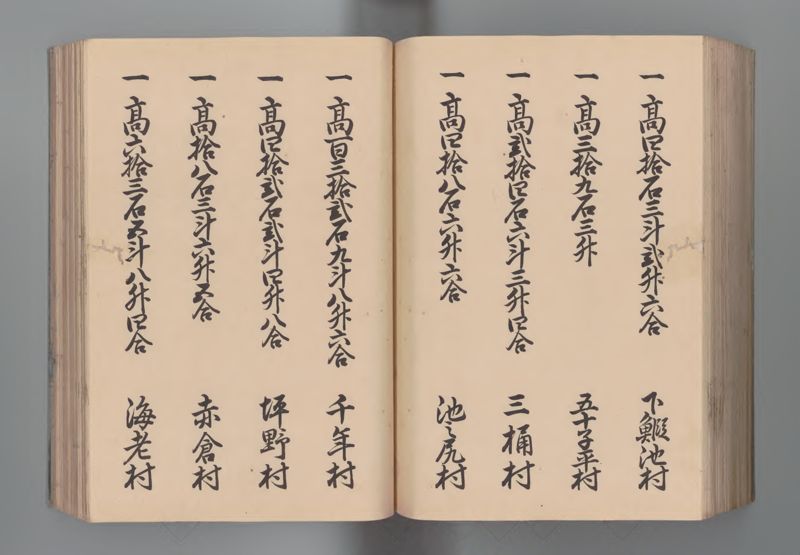 一高四拾石三斗弐升六合 下鰕池村
一高三拾九石三升 五十子平村
一高弐拾四石六斗三升四合 三桶村
一高四拾八石六升六合 池之尻村
一高百三拾弐石九斗八升六合 千年村
一高四拾弐石弐斗四升八合 坪野村
一高拾八石三斗六升五合 赤倉村
一高六拾三石五斗八升四合 海老村